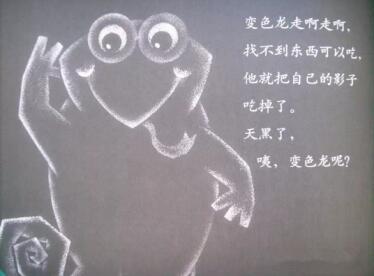 变色龙走啊走啊，
找不到东西可以吃，
他就把自己的影子
吃掉了。
天黑了，
咦，变色龙呢？